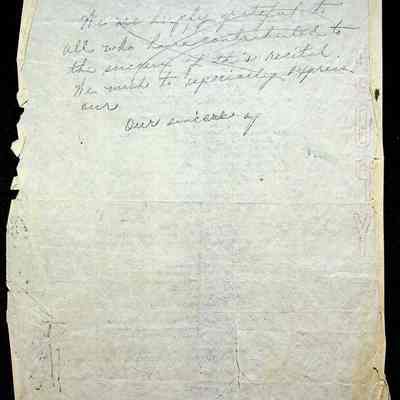 We are highly grateful to
all who have contributed to
the success of this recital.
We wish to especially express
our
Our sincere